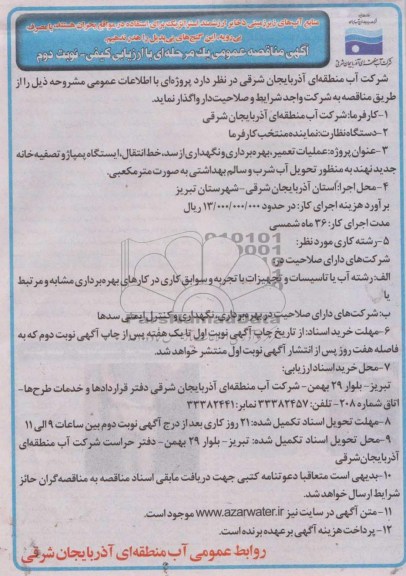 منابع آب‌های زیرزمینی ذخایر ارزشمند استراتژیک برای استفاده در مواقع بحران هستند با مصرف
بی رویه این گنج‌های بی‌بدیل را هدر ندهیم.
آگهی مناقصه عمومی یک مرحله‌ای با ارزیابی کیفی- نوبت دوم
شرکت آب منطقه‌ای آذربایجان شرقی در نظر دارد پروژه‌ای با اطلاعات عمومی مشروحه ذیل را از
طریق مناقصه به شرکت واجد شرایط و صلاحیت‌دار واگذار نماید.
۱-کارفرما: شرکت آب منطقه‌ای آذربایجان شرقی
۲-دستگاه نظارت: نماینده منتخب کارفرما
۳-عنوان پروژه: عملیات تعمیر، بهره‌برداری و نگهداری از سد، خط انتقال، ایستگاه پمپاژ و تصفیه خانه
جدید نهند به منظور تحویل آب شرب و سالم بهداشتی به صورت متر مکعبی.
۴-محل اجرا: استان آذربایجان شرقی -شهرستان تبریز
برآورد هزینه اجرای کار: در حدود ۱۳/۰۰۰/۰۰۰/۰۰۰ ریال
مدت اجرای کار: ۳۶ ماه شمسی
۵-رشته کاری مورد نظر:
شرکت‌های دارای صلاحیت در:
الف: رشته آب یا تاسیسات و تجهیزات با تجربه و سوابق کاری در کارهای بهره‌برداری مشابه و مرتبط
یا
ب: شرکت‌های دارای صلاحیت در بهره‌برداری، نگهداری و کنترل ایمنی سدها
۶-مهلت خرید اسناد: از تاریخ چاپ آگهی نوبت اول تا یک هفته پس از چاپ آگهی نوبت دوم که به
فاصله هفت روز پس از انتشار آگهی نوبت اول منتشر خواهد شد.
۷-محل خرید اسناد ارزیابی:
تبریز- بلوار ۲۹ بهمن- شرکت آب منطقه‌ای آذربایجان شرقی دفتر قراردادها و خدمات طرح‌ها-
اتاق شماره ۲۰۸- تلفن: ۳۳۳۸۲۴۵۷ نمابر: ۳۳۳۸۲۴۴۱
۸-مهلت تحویل اسناد تکمیل شده: ۲۱ روز کاری بعد از درج آگهی نوبت دوم بین ساعات ۹ الی ۱۱
۹-محل تحویل اسناد تکمیل شده: تبریز- بلوار ۲۹ بهمن- دفتر حراست شرکت آب منطقه‌ای
آذربایجان شرقی
۱۰-بدیهی است متعاقبا دعوتنامه کتبی جهت دریافت مابقی اسناد مناقصه به مناقصه‌گران حائز
شرایط ارسال خواهد شد.
۱۱-متن آگهی در سایت نیز www.azarwater.ir موجود است.
۱۲-پرداخت هزینه آگهی بر عهده برنده است.
روابط عمومی آب منطقه‌ای آذربایجان شرقی